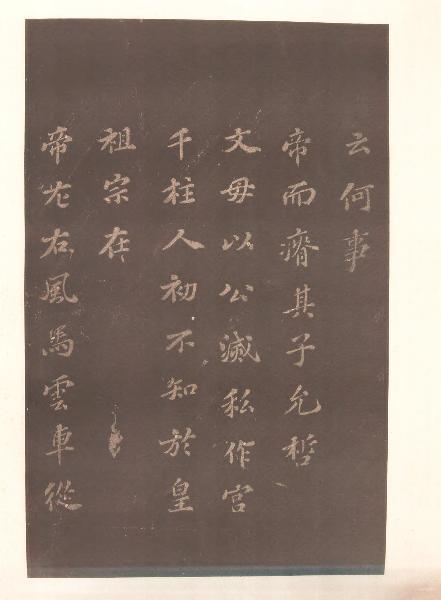 云何事
帝而瘠其子允哲
文母以公滅私作宮
千柱人初不知於皇
祖宗在
帝左右風馬雲車從